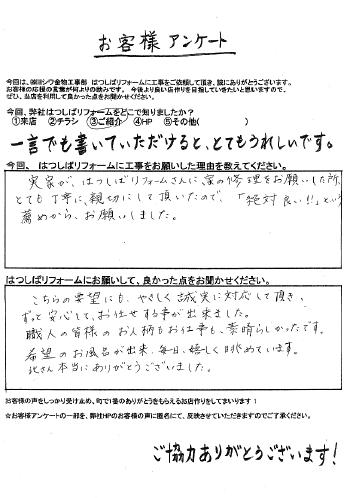 お客様 アンケート
今回は、㈱ヨシワ金物工事部 はつしばリフォームに工事をご依頼して頂き、誠にありがとうございます。
お客様の応援の言葉が何よりの励みです。 今後より良い店作りを目指していきたいと思いますので、
ぜひ、当店を利用して良かった点をお聞かせください。
今回、弊社はつしばリフォームをどこで知りましたか?
①来店 ②チラシ ③ご紹介 ④HP ⑤その他( )
一言でも書いていただけると、とてもうれしいです。
今回、 はつしばリフォームに工事をお願いした理由を教えてください。
実家が、はつしばリフォームさんに、家の修理をお願いした所、
とても丁寧に、親切にして頂いたので、「絶対良い!!」という
薦めから、お願いしました。
はつしばリフォームにお願いして、良かった点をお聞かせください。
こちらの要望にも、やさしく誠実に対応して頂き、
ずっと安心して、お任せする事が出来ました。
職人の皆様のお人柄もお仕事も、素晴らしかったです。
希望のお風呂が出来、毎日、嬉しく眺めています。
北さん本当にありがとうございました。
お客様の声をしっかり受け止め、町で1番のありがとうをもらえるお店作りをしてまいります!
☆お客様アンケートの一部を、弊社HPのお客様の声に匿名にて、反映させていただきますのでご了承ください。
ご協力ありがとうございます!